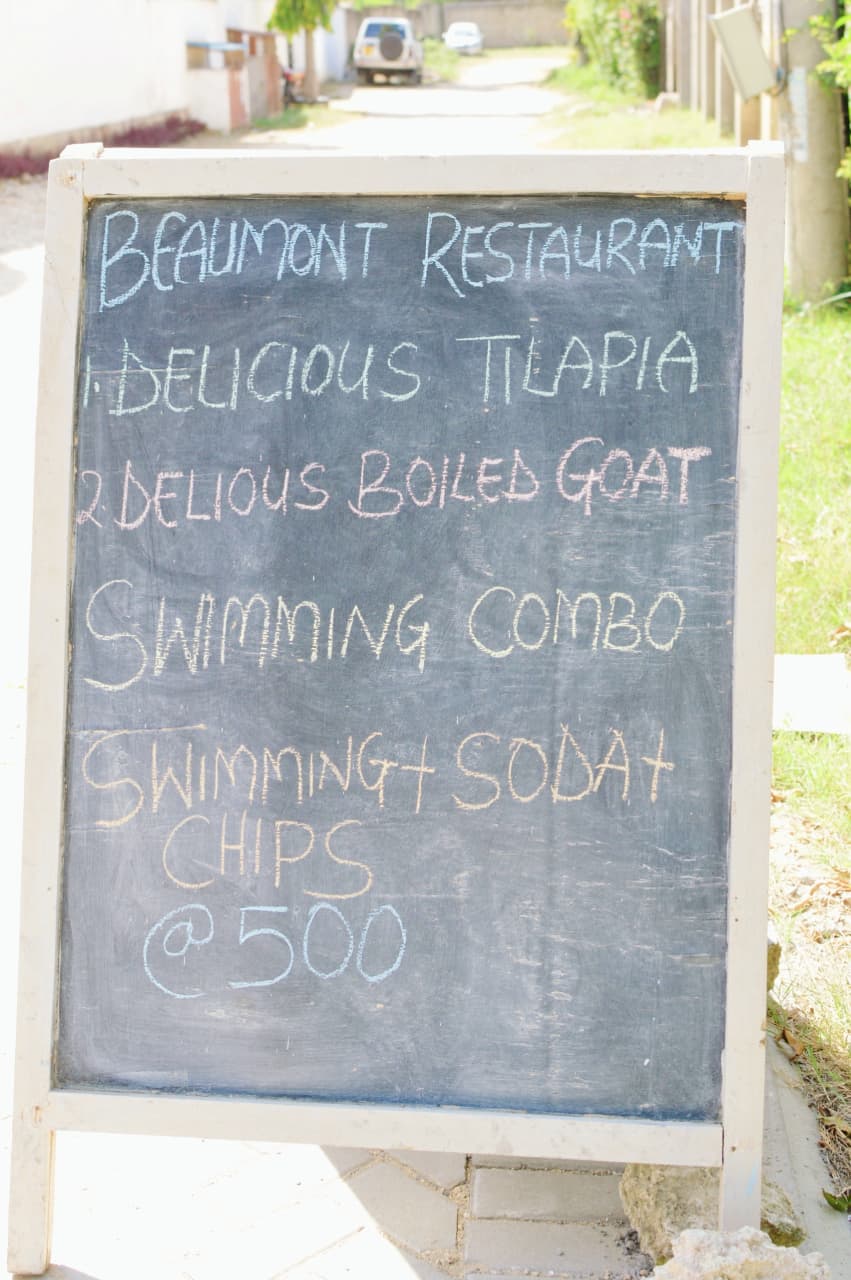 BEAUMONT RESTAURANT
1. DELICIOUS TILAPIA
2. DELIOUS BOILED GOAT
SWIMMING COMBO
SWIMMING + SODA +
CHIPS
@ 500